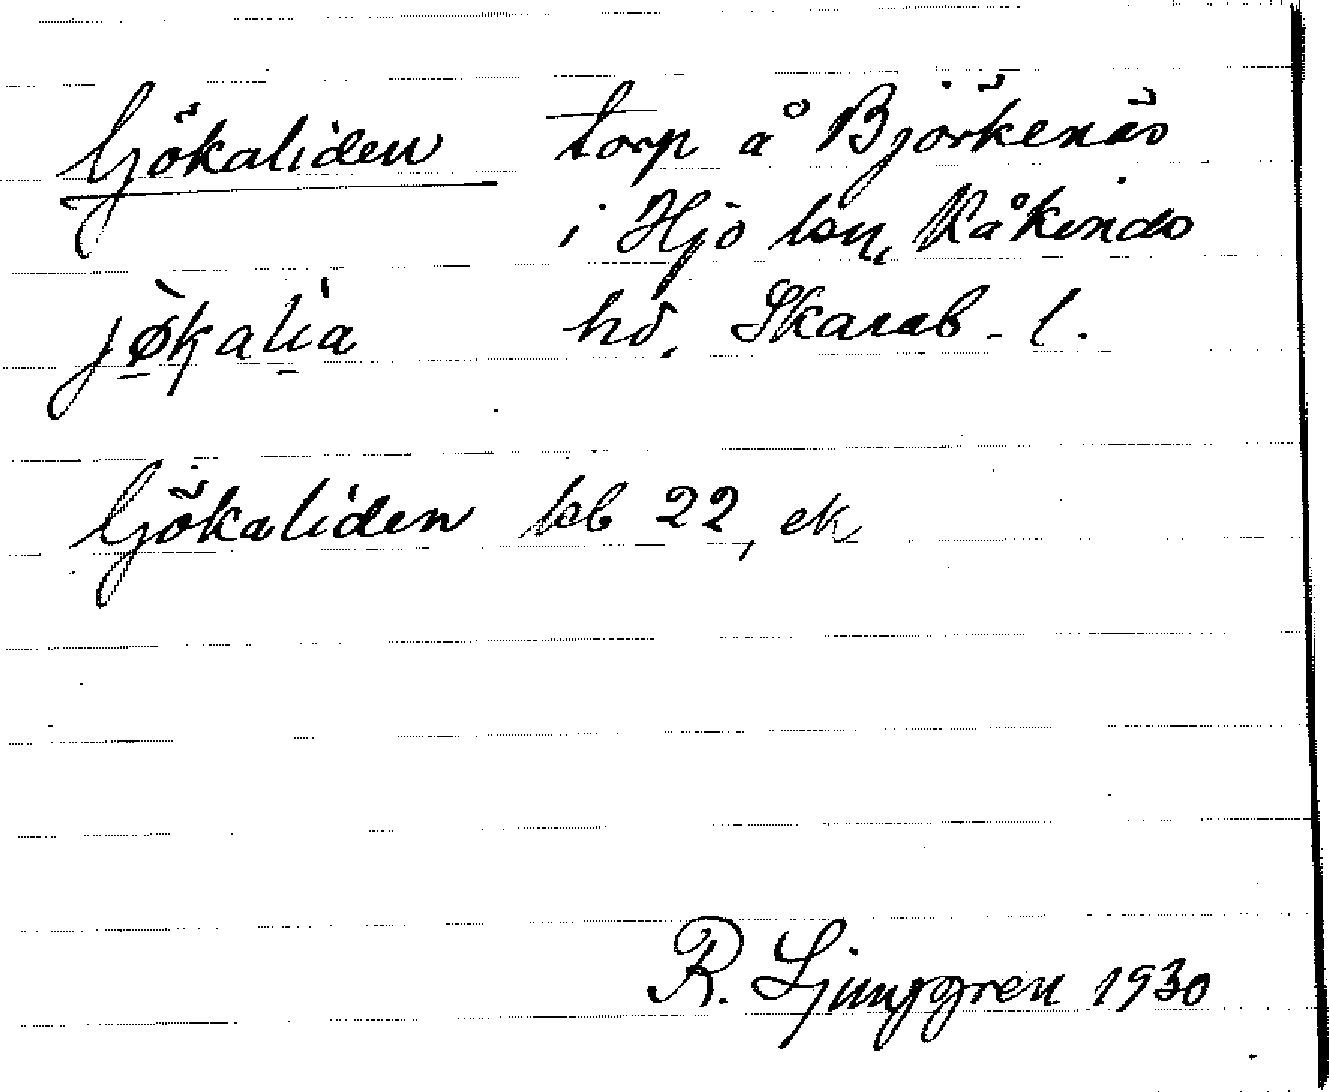 Gökaliden torp å Björkenäs
i Hjo lsn, Kåkinds
jø̀kalìa hd, Skarab. l.
Gökaliden kb 22, ek
R. Ljunggren 1930